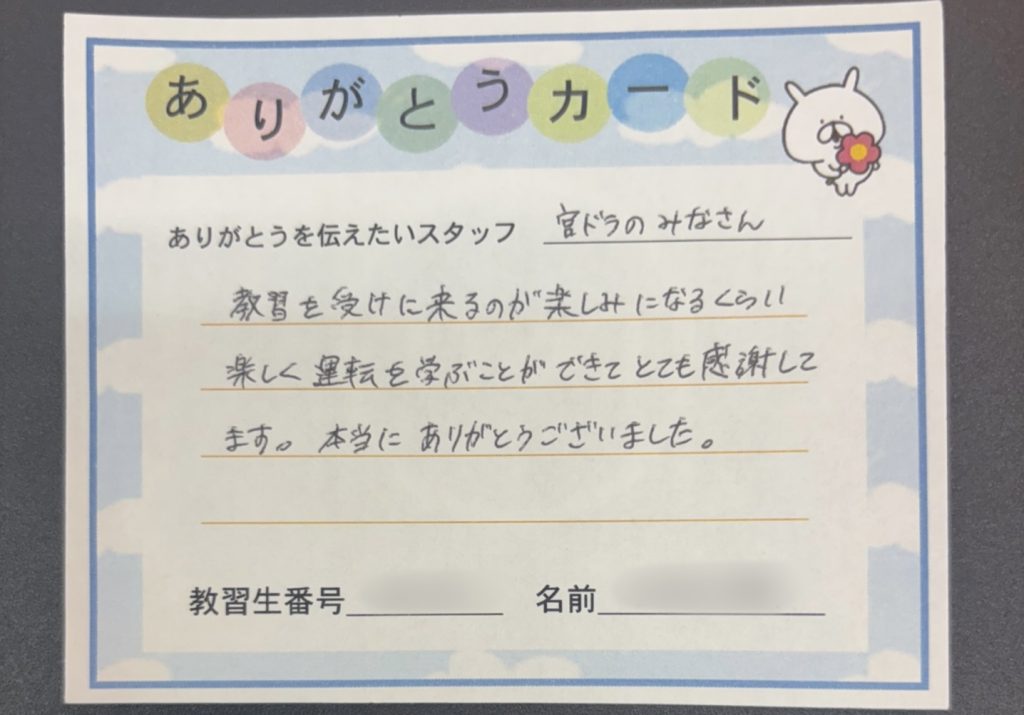 ありがとうカード
ありがとうを伝えたいスタッフ 宮ドラのみなさん
教習を受けに来るのが楽しみになるくらい
楽しく運転を学ぶことができてとても感謝して
ます。本当にありがとうございました。
教習生番号 名前